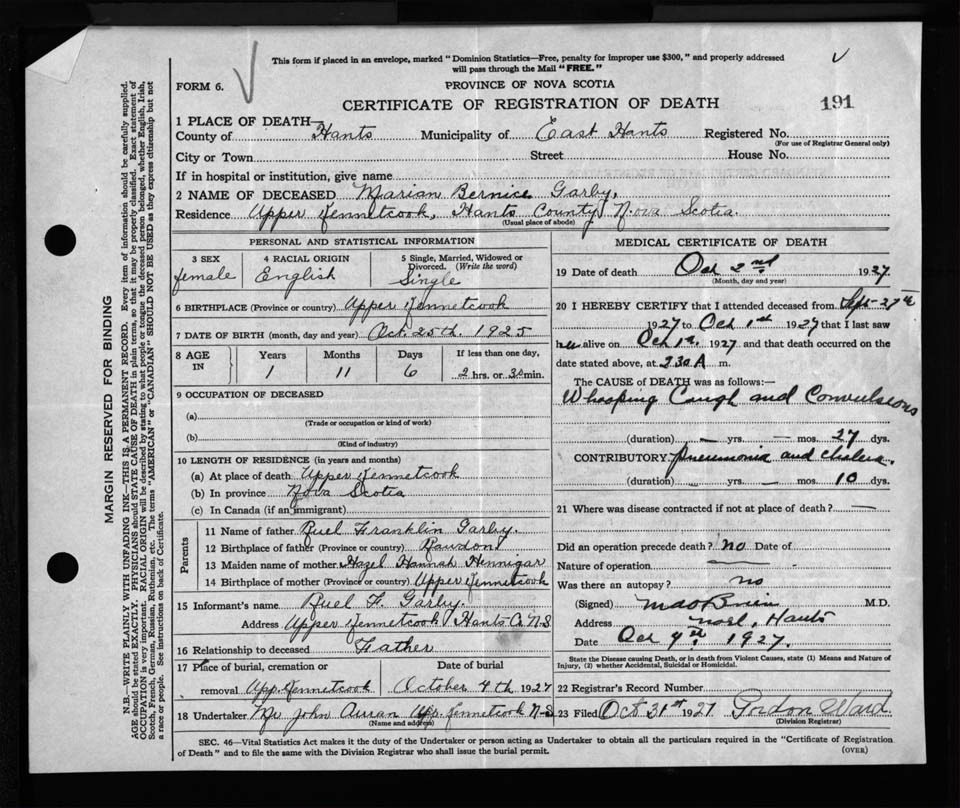 This form if placed in an envelope, marked "Dominion Statistics—Free, penalty for improper use $300," and properly addressed
will pass through the Mail "FREE."
FORM 6.
PROVINCE OF NOVA SCOTIA
CERTIFICATE OF REGISTRATION OF DEATH
191
1 PLACE OF DEATH—
County of Hants Municipality of East Hants Registered No.
(For use of Registrar General only)
City or Town Street House No.
If in hospital or institution, give name
2 NAME OF DECEASED Marian Bernice Garby.
Residence Upper Kennetcook, Hants County, Nova Scotia.
(Usual place of abode)
PERSONAL AND STATISTICAL INFORMATION
3 SEX 4 RACIAL ORIGIN 5 Single, Married, Widowed or
Divorced. (Write the word)
female English Single
6 BIRTHPLACE (Province or country) Upper Kennetcook
7 DATE OF BIRTH (month, day and year) Oct. 25th. 1925
8 AGE IN Years Months Days If less than one day,
1 11 6 2 hrs. or 30 min.
9 OCCUPATION OF DECEASED
(a)
(Trade or occupation or kind of work)
(b)
(Kind of industry)
10 LENGTH OF RESIDENCE (in years and months)
(a) At place of death Upper Kennetcook
(b) In province Nova Scotia
(c) In Canada (if an immigrant)
Parents
11 Name of father Ruel Franklin Garby.
12 Birthplace of father (Province or country) Rawdon
13 Maiden name of mother Hazel Hannah Hennigar
14 Birthplace of mother (Province or country) Upper Kennetcook
15 Informant's name Ruel F. Garby.
Address Upper Kennetcook Hants Co. N-S
16 Relationship to deceased Father
17 Place of burial, cremation or Date of burial
removal Upp. Kennetcook October 4th 1927
18 Undertaker Mr John Upp. Kennetcook N-S
(Name and address)
MEDICAL CERTIFICATE OF DEATH
19 Date of death Oct 2nd 1927
(Month, day and year)
20 I HEREBY CERTIFY that I attended deceased from Sept 27th
1927 to Oct 1st 1927 that I last saw
her alive on Oct 1st. 1927 and that death occurred on the
date stated above, at 2.30 A m.
The CAUSE of DEATH was as follows:—
Whooping Cough and Convulsions
(duration) — yrs. — mos. 27 dys.
CONTRIBUTORY. Pneumonia and cholera.
(duration) — yrs. — mos. 10 dys.
21 Where was disease contracted if not at place of death? —
Did an operation precede death? no Date of
Nature of operation —
Was there an autopsy? no
(Signed) M.D.
Address Noel, Hants
Date Oct 4th 1927.
State the Disease causing Death, or in death from Violent Causes, state (1) Means and Nature of
Injury, (2) whether Accidental, Suicidal or Homicidal.
22 Registrar's Record Number
23 Filed Oct 31st 1927 Gordon Ward
(Division Registrar)
SEC. 46—Vital Statistics Act makes it the duty of the Undertaker or person acting as Undertaker to obtain all the particulars required in the "Certificate of Registration
of Death" and to file the same with the Division Registrar who shall issue the burial permit.
(OVER)
MARGIN RESERVED FOR BINDING
N.B.—WRITE PLAINLY WITH UNFADING INK—THIS IS A PERMANENT RECORD. Every item of information should be carefully supplied.
AGE should be stated EXACTLY. PHYSICIANS should STATE CAUSE OF DEATH in plain terms, so that it may be properly classified. Exact statement of
OCCUPATION is very important. RACIAL ORIGIN will be described by stating to what people or tongue the deceased person belonged, whether English, Irish,
Scotch, French, German, Russian, Ruthenian, etc. The terms "AMERICAN" or "CANADIAN" SHOULD NOT BE USED as they express citizenship but not
a race or people. See instructions on back of Certificate.